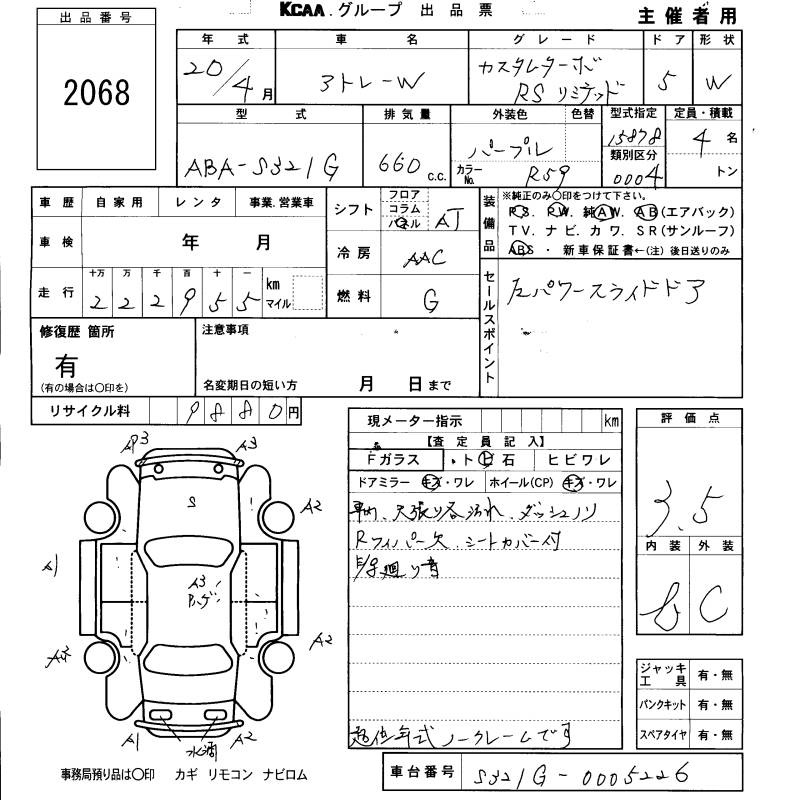 KCAA グループ 出品票
主催者用
出品番号
2068
年式 車名 グレード ドア 形状
20/4月 3トレーW カスタムターボ RSリミテッド 5 W
型式 排気量 外装色 色替 型式指定 定員・積載
ABA-S321G 660 c.c. パープル 15878 4名
カラーNo. R59 類別区分 0004 トン
車歴 自家用 レンタ 事業.営業車
シフト フロア コラム パネル AT
装備品 ※純正のみ〇印をつけて下さい。
PS. PW. 純AW. AB(エアバック)
TV. ナビ. カワ. SR(サンルーフ)
ABS ・ 新車保証書←(注) 後日送りのみ
車検 年 月
冷房 AAC
走行 十万 万 千 百 十 一
222955 km マイル
燃料 G
セールスポイント
左パワースライドドア
修復歴 箇所
有
(有の場合は〇印を)
注意事項
名変期日の短い方 月 日まで
リサイクル料 9880円
現メーター指示 km
【査定員記入】
Fガラス ・ト ヒ 石 ヒビワレ
ドアミラー キズ・ワレ ホイール(CP) キズ・ワレ
天張り各汚れ、ダッシュノリ
Rワイパー欠、シートカバー付
廻り音
低年式ノークレームです
評価点
3.5
内装 外装
C
ジャッキ工具 有・無
パンクキット 有・無
スペアタイヤ 有・無
A3
A3
S
A2
A1
A3
A2
A2
A1
A2
事務局預り品は〇印 カギ リモコン ナビロム
車台番号 S321G-0005226